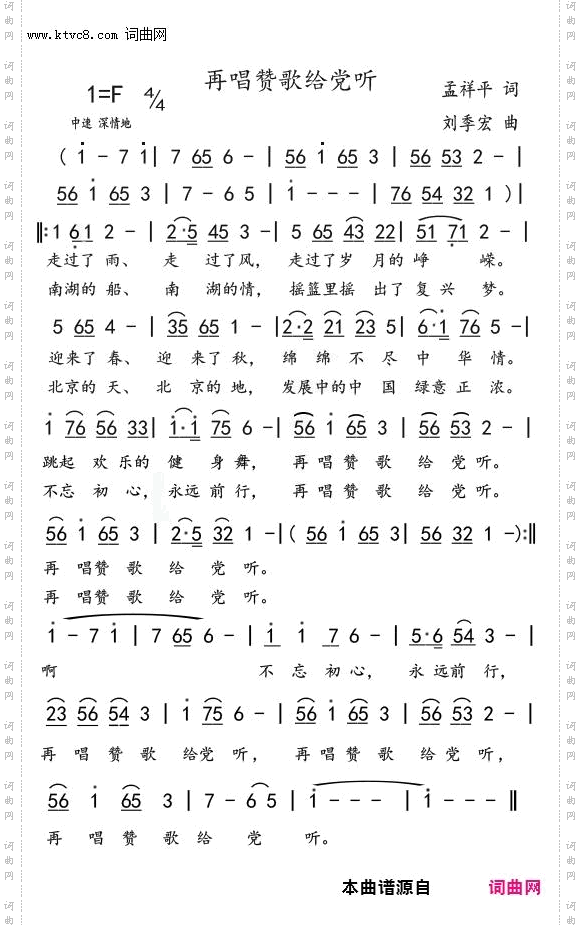 www.ktvc8.com 词曲网
再唱赞歌给党听
1=F 4/4
孟祥平 词
中速 深情地
刘季宏 曲
( 1 - 7 1 | 7 65 6 - | 56 1 65 3 | 56 53 2 - |
56 1 65 3 | 7 - 6 5 | 1 - - - | 76 54 32 1 ) |
‖: 1 61 2 - | 2·5 45 3 - | 5 65 43 22 | 51 71 2 - |
走过了 雨、 走 过了风, 走过了岁 月的 峥 嵘。
南湖的 船、 南 湖的情, 摇篮里摇 出了 复 兴 梦。
5 65 4 - | 35 65 1 - | 2·2 21 23 5 | 6·1 76 5 - |
迎来了 春、 迎 来了 秋, 绵 绵 不 尽 中 华 情。
北京的 天、 北 京的 地, 发展中的中 国 绿意 正 浓。
1 76 56 33 | 1·1 75 6 - | 56 1 65 3 | 56 53 2 - |
跳起 欢 乐的 健 身 舞, 再 唱 赞 歌 给 党 听。
不忘 初 心, 永远 前 行, 再 唱 赞 歌 给 党 听。
56 1 65 3 | 2·5 32 1 - | ( 56 1 65 3 | 56 32 1 - ) :‖
再 唱赞 歌 给 党 听。
再 唱赞 歌 给 党 听。
1 - 7 1 | 7 65 6 - | 1 1 7 6 - | 5·6 54 3 - |
啊 不 忘 初 心, 永 远前 行,
23 56 54 3 | 1 75 6 - | 56 1 65 3 | 56 53 2 - |
再 唱 赞 歌 给党 听, 再 唱 赞 歌 给 党 听,
56 1 65 3 | 7 - 6 5 | 1 - - - | 1 - - - ‖
再 唱 赞 歌 给 党 听。
本曲谱源自 词曲网
词曲网